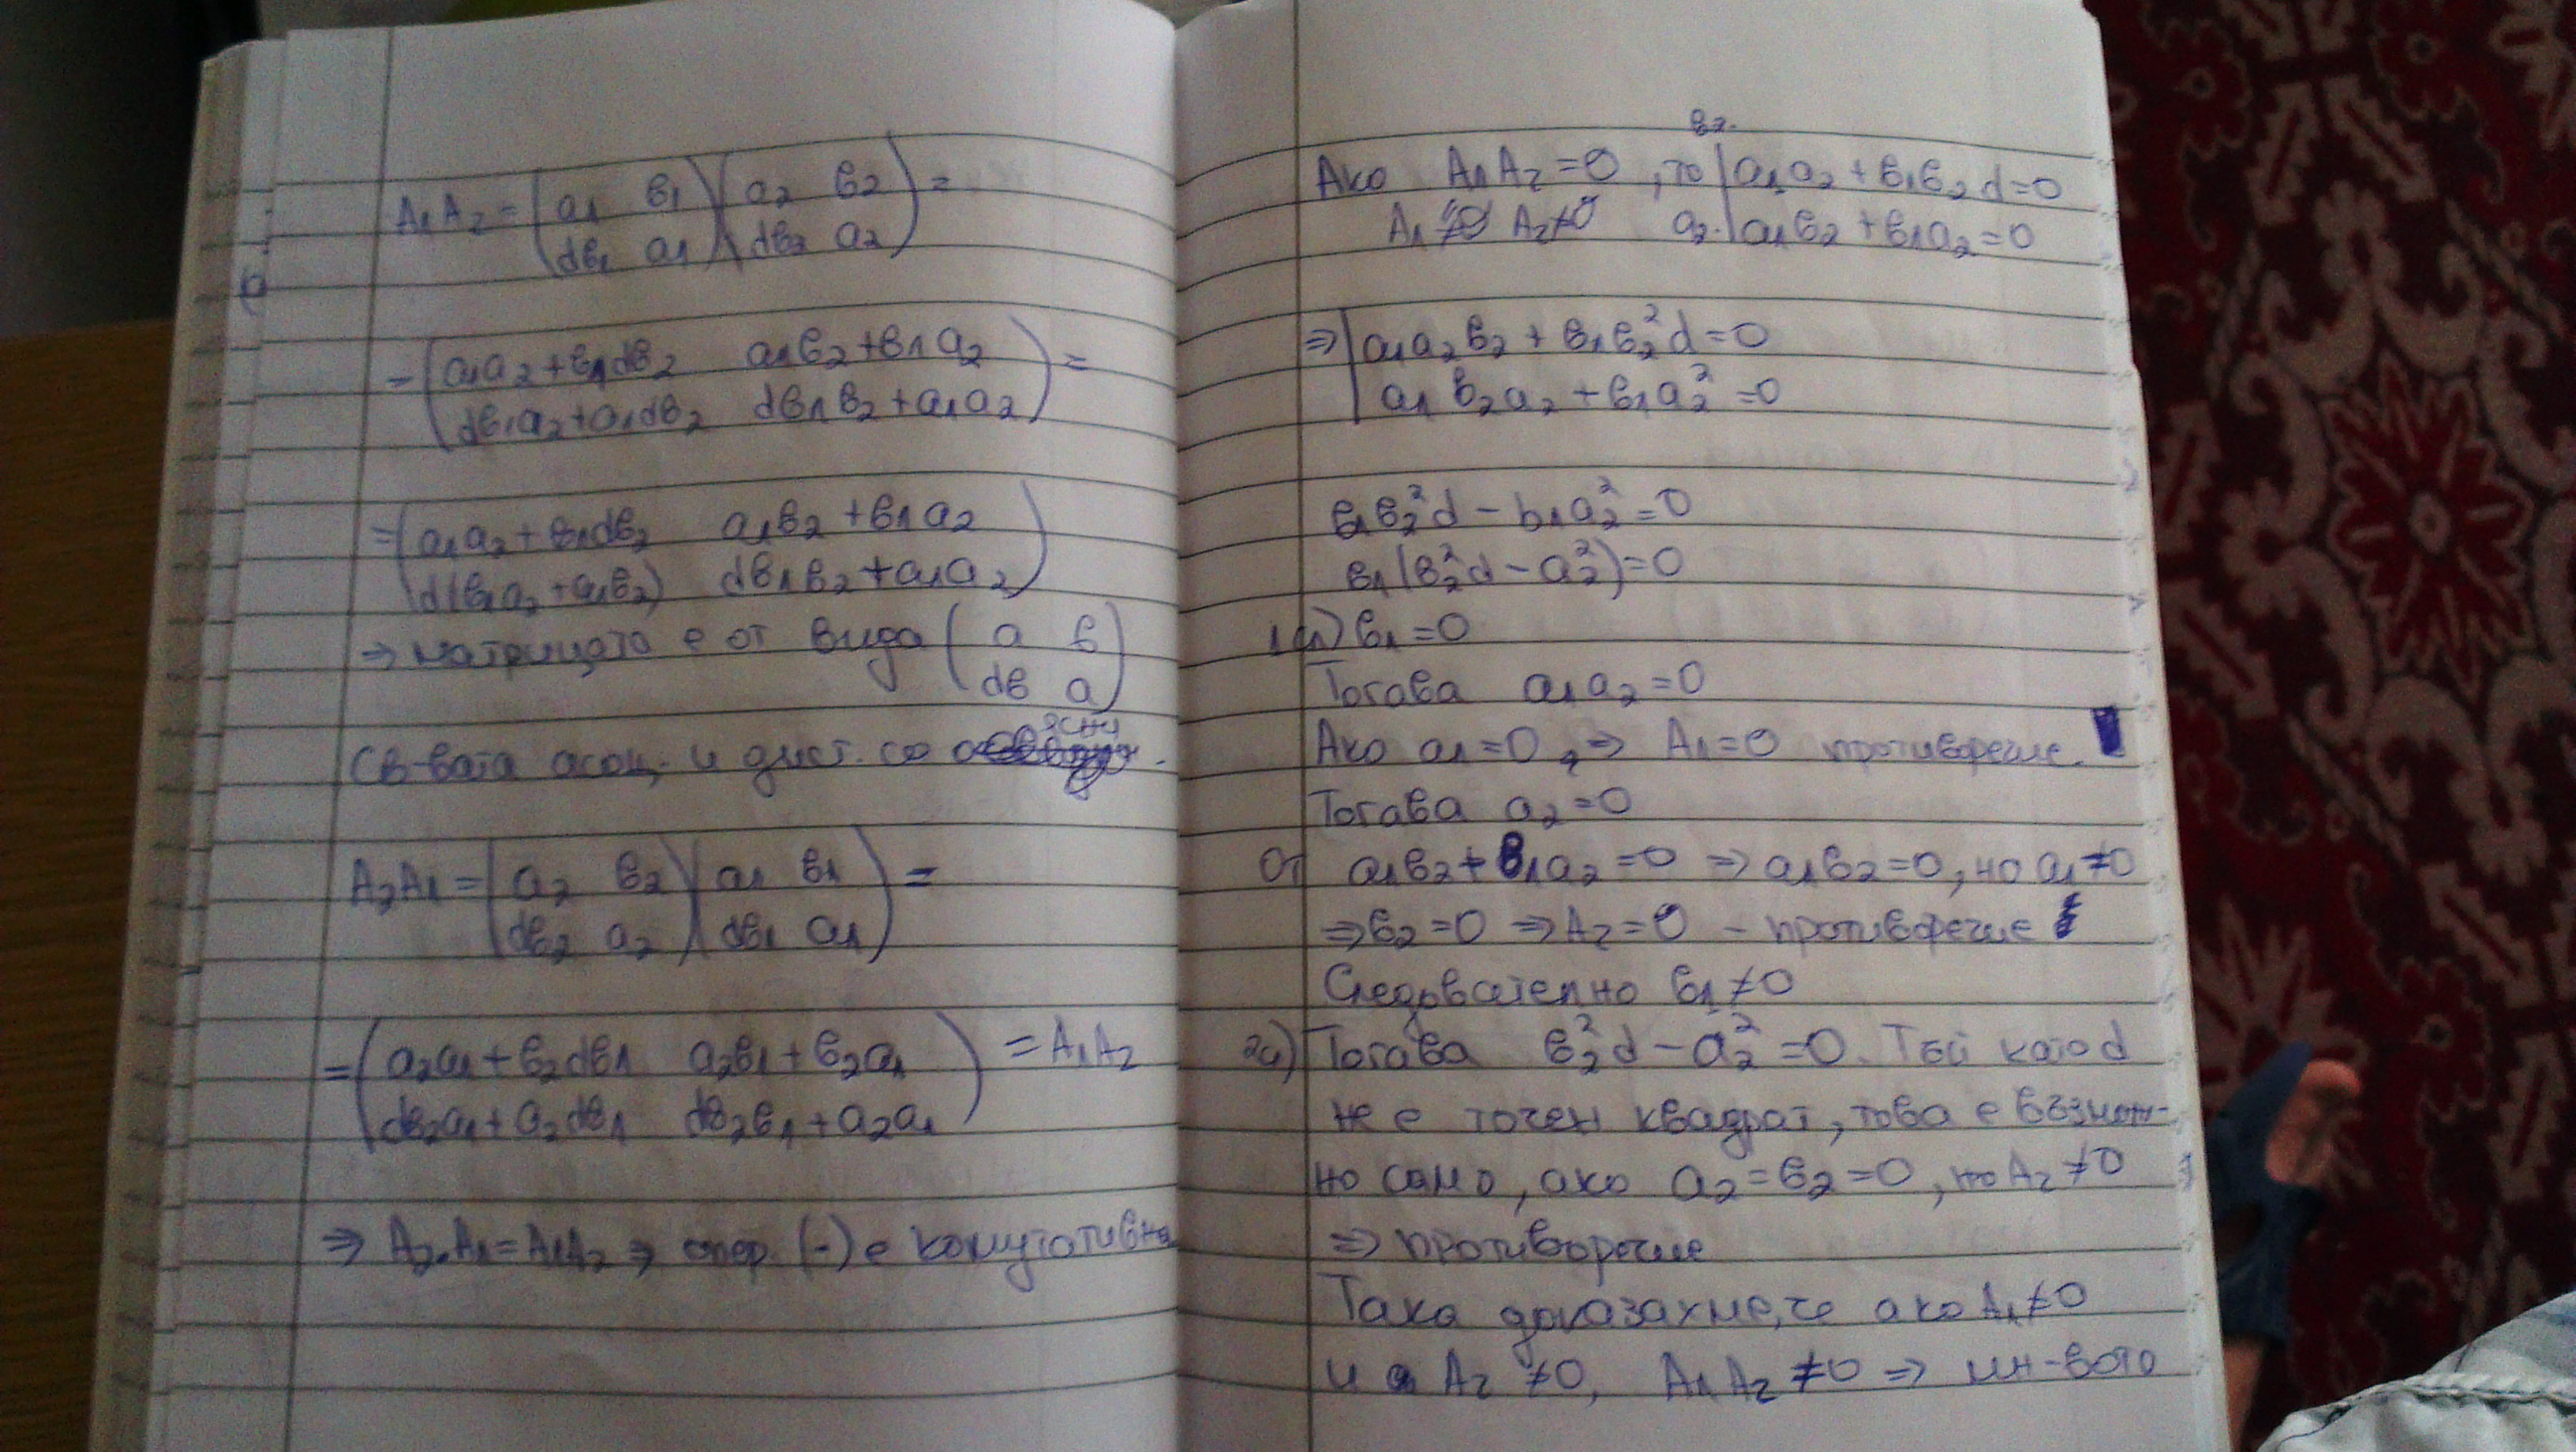 A₁A₂ = (a₁ в₁) (a₂ в₂) =
(dв₁ a₁) (dв₂ a₂)
= (a₁a₂+в₁dв₂ a₁в₂+в₁a₂) =
(dв₁a₂+a₁dв₂ dв₁в₂+a₁a₂)
= (a₁a₂+в₁dв₂ a₁в₂+в₁a₂)
(d(в₁a₂+a₁в₂) dв₁в₂+a₁a₂)
⇒ матрицата е от вида (a в)
(dв a)
Св-вата асоц. и дист. са ясни
A₂A₁ = (a₂ в₂) (a₁ в₁) =
(dв₂ a₂) (dв₁ a₁)
= (a₂a₁+в₂dв₁ a₂в₁+в₂a₁) = A₁A₂
(dв₂a₁+a₂dв₁ dв₂в₁+a₂a₁)
⇒ A₂.A₁=A₁A₂ ⇒ опер. (·) е комутативна
в₂.
Ако A₁A₂=0, то |a₁a₂+в₁в₂d=0
A₁≠0 A₂≠0 a₂.|a₁в₂+в₁a₂=0
⇒ |a₁a₂в₂+в₁в₂²d=0
|a₁в₂a₂+в₁a₂²=0
в₁в₂²d-b₁a₂²=0
в₁(в₂²d-a₂²)=0
1сл) в₁=0
Тогава a₁a₂=0
Ако a₁=0, ⇒ A₁=0 противоречие
Тогава a₂=0
От a₁в₂+в₁a₂=0 ⇒ a₁в₂=0, но a₁≠0
⇒ в₂=0 ⇒ A₂=0 - противоречие
Следователно в₁≠0
2сл) Тогава в₂²d-a₂²=0. Тъй като d
не е точен квадрат, това е възмож-
но само, ако a₂=в₂=0, но A₂≠0
⇒ противоречие
Така доказахме, че ако A₁≠0
и A₂≠0, A₁A₂≠0 ⇒ мн-вото